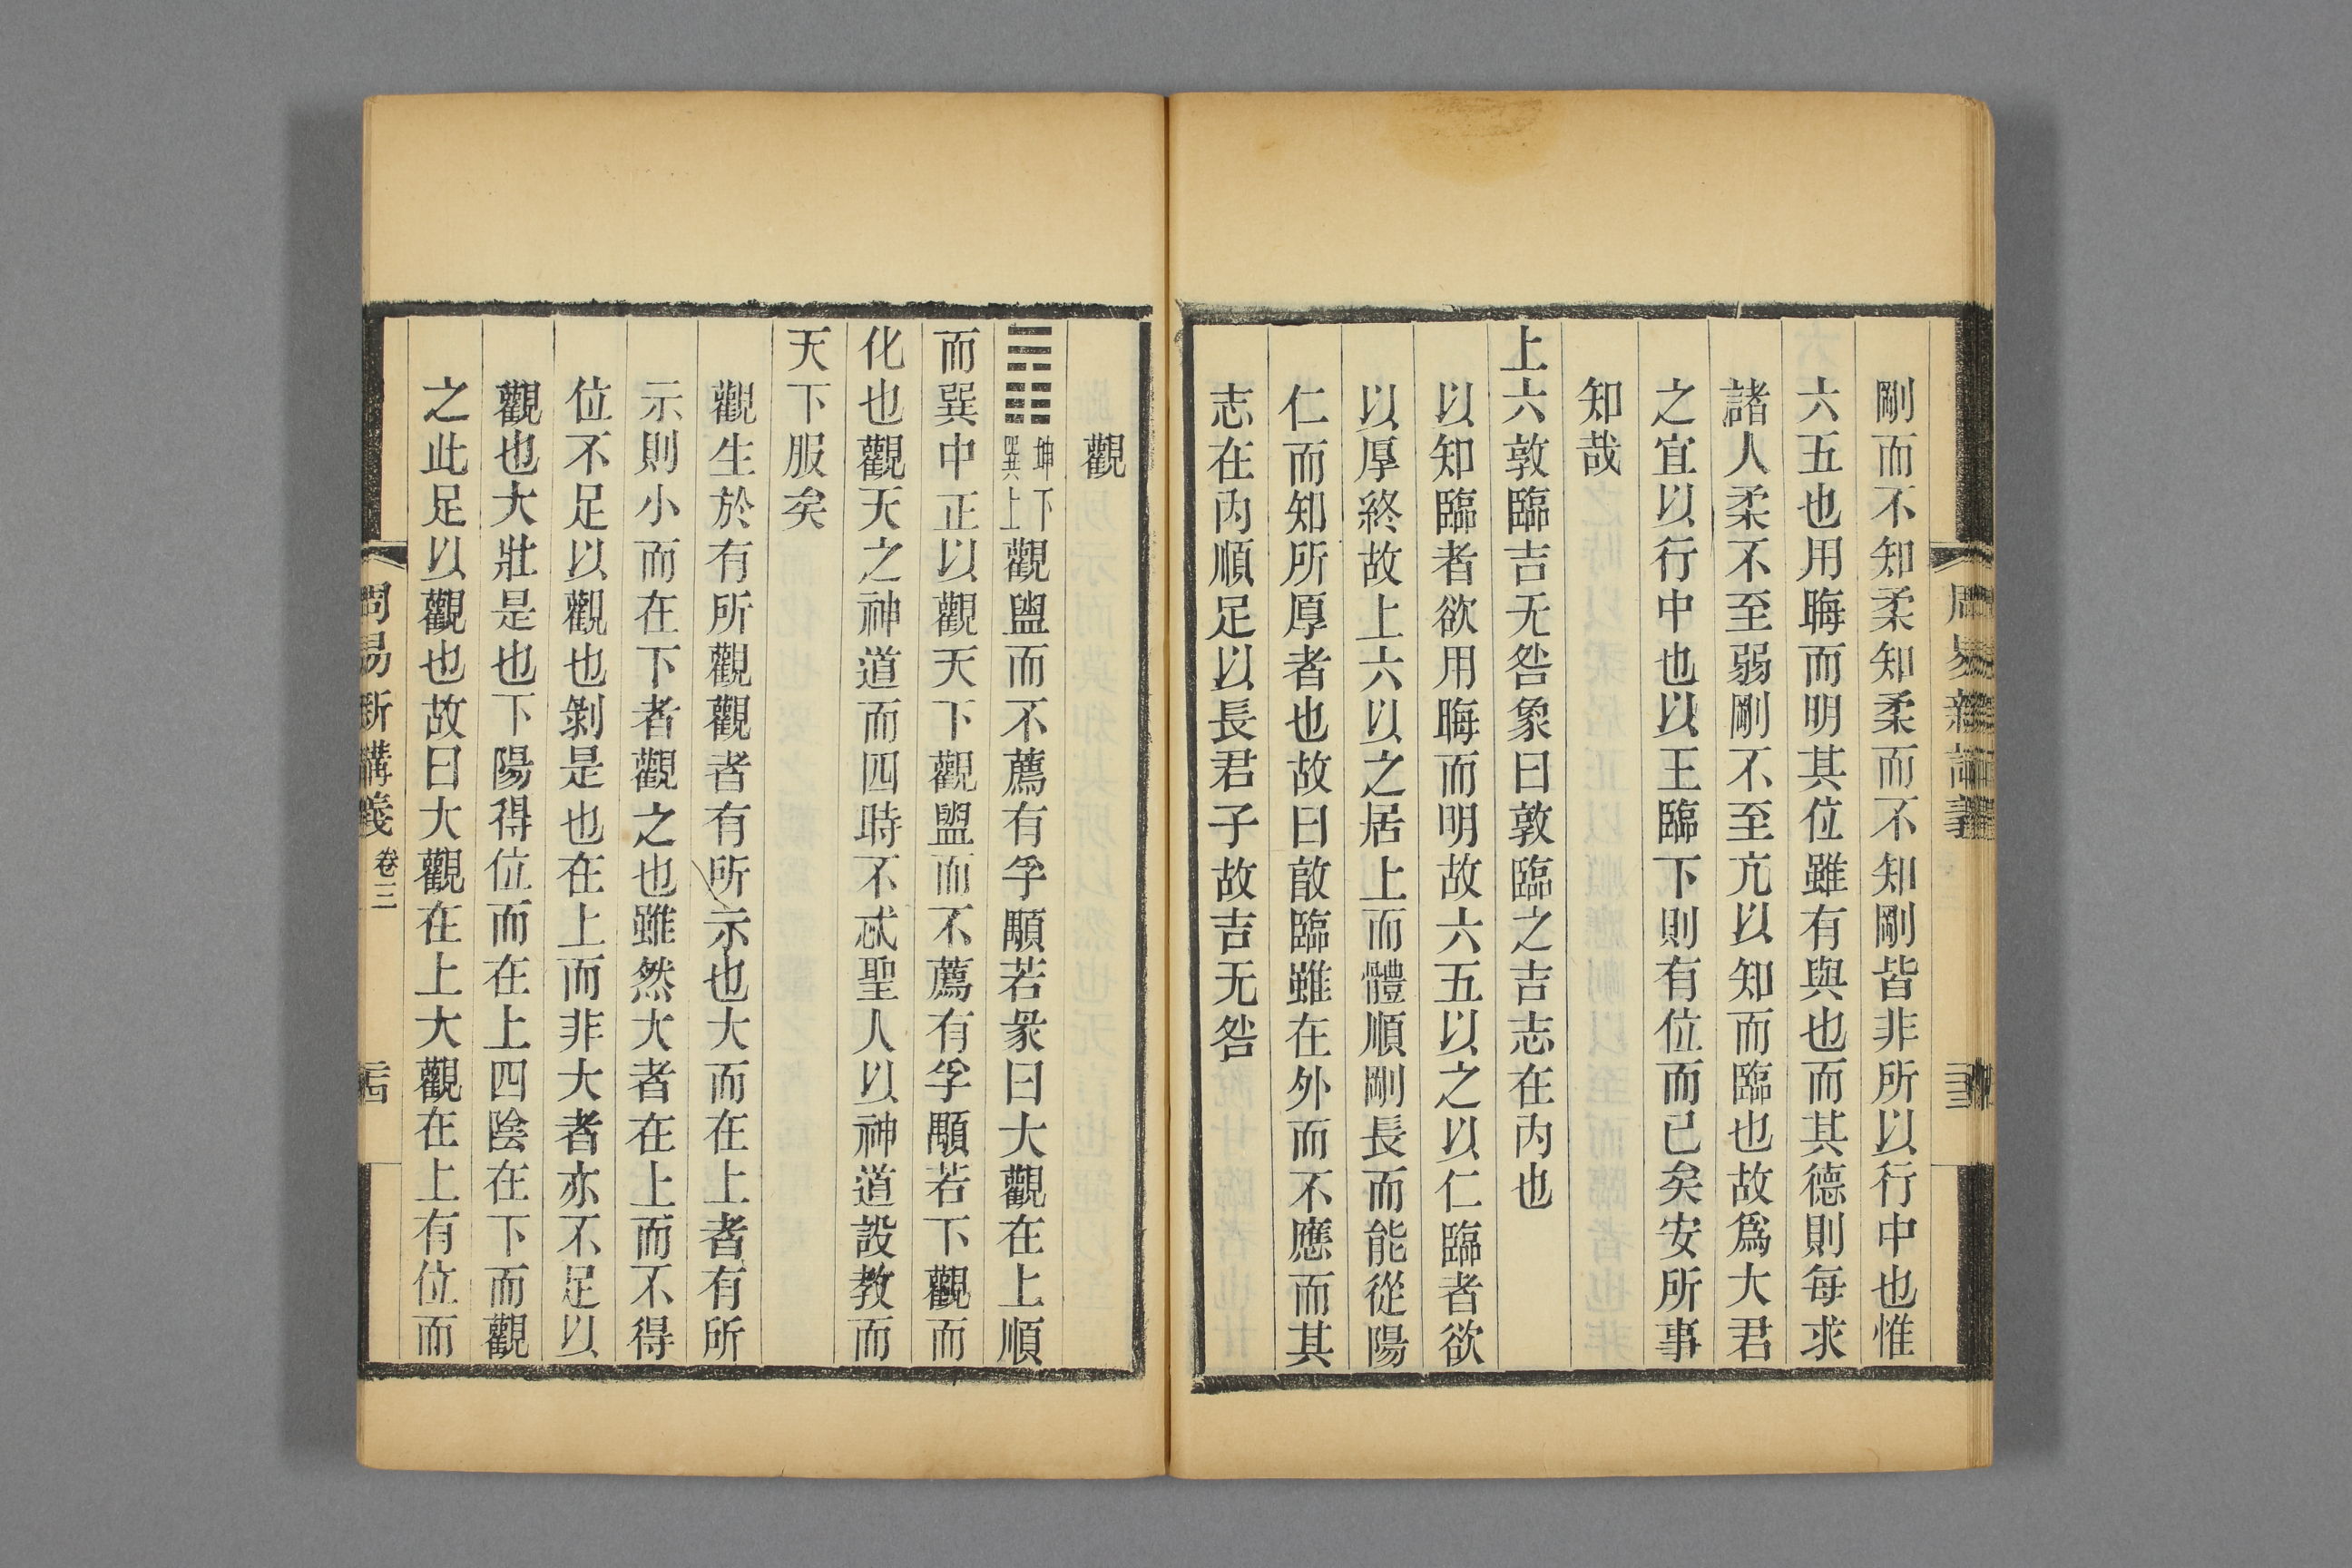 周易新講義
三三
剛而不知柔知柔而不知剛皆非所以行中也惟
六五也用晦而明其位雖有與也而其德則每求
諸人柔不至弱剛不至亢以知而臨也故爲大君
之宜以行中也以王臨下則有位而已矣安所事
知哉
上六敦臨吉无咎象曰敦臨之吉志在內也
以知臨者欲用晦而明故六五以之以仁臨者欲
以厚終故上六以之居上而體順剛長而能從陽
仁而知所厚者也故曰敢臨雖在外而不應而其
志在內順足以長君子故吉无咎
觀
䷓坤下巽上觀盥而不薦有孚顒若彖曰大觀在上順
而巽中正以觀天下觀盥而不薦有孚顒若下觀而
化也觀天之神道而四時不忒聖人以神道設教而
天下服矣
觀生於有所觀觀者有所示也大而在上者有所
示則小而在下者觀之也雖然大者在上而不得
位不足以觀也剝是也在上而非大者亦不足以
觀也大壯是也下陽得位而在上四陰在下而觀
之此足以觀也故曰大觀在上大觀在上有位而
周易新講義
卷三
三四